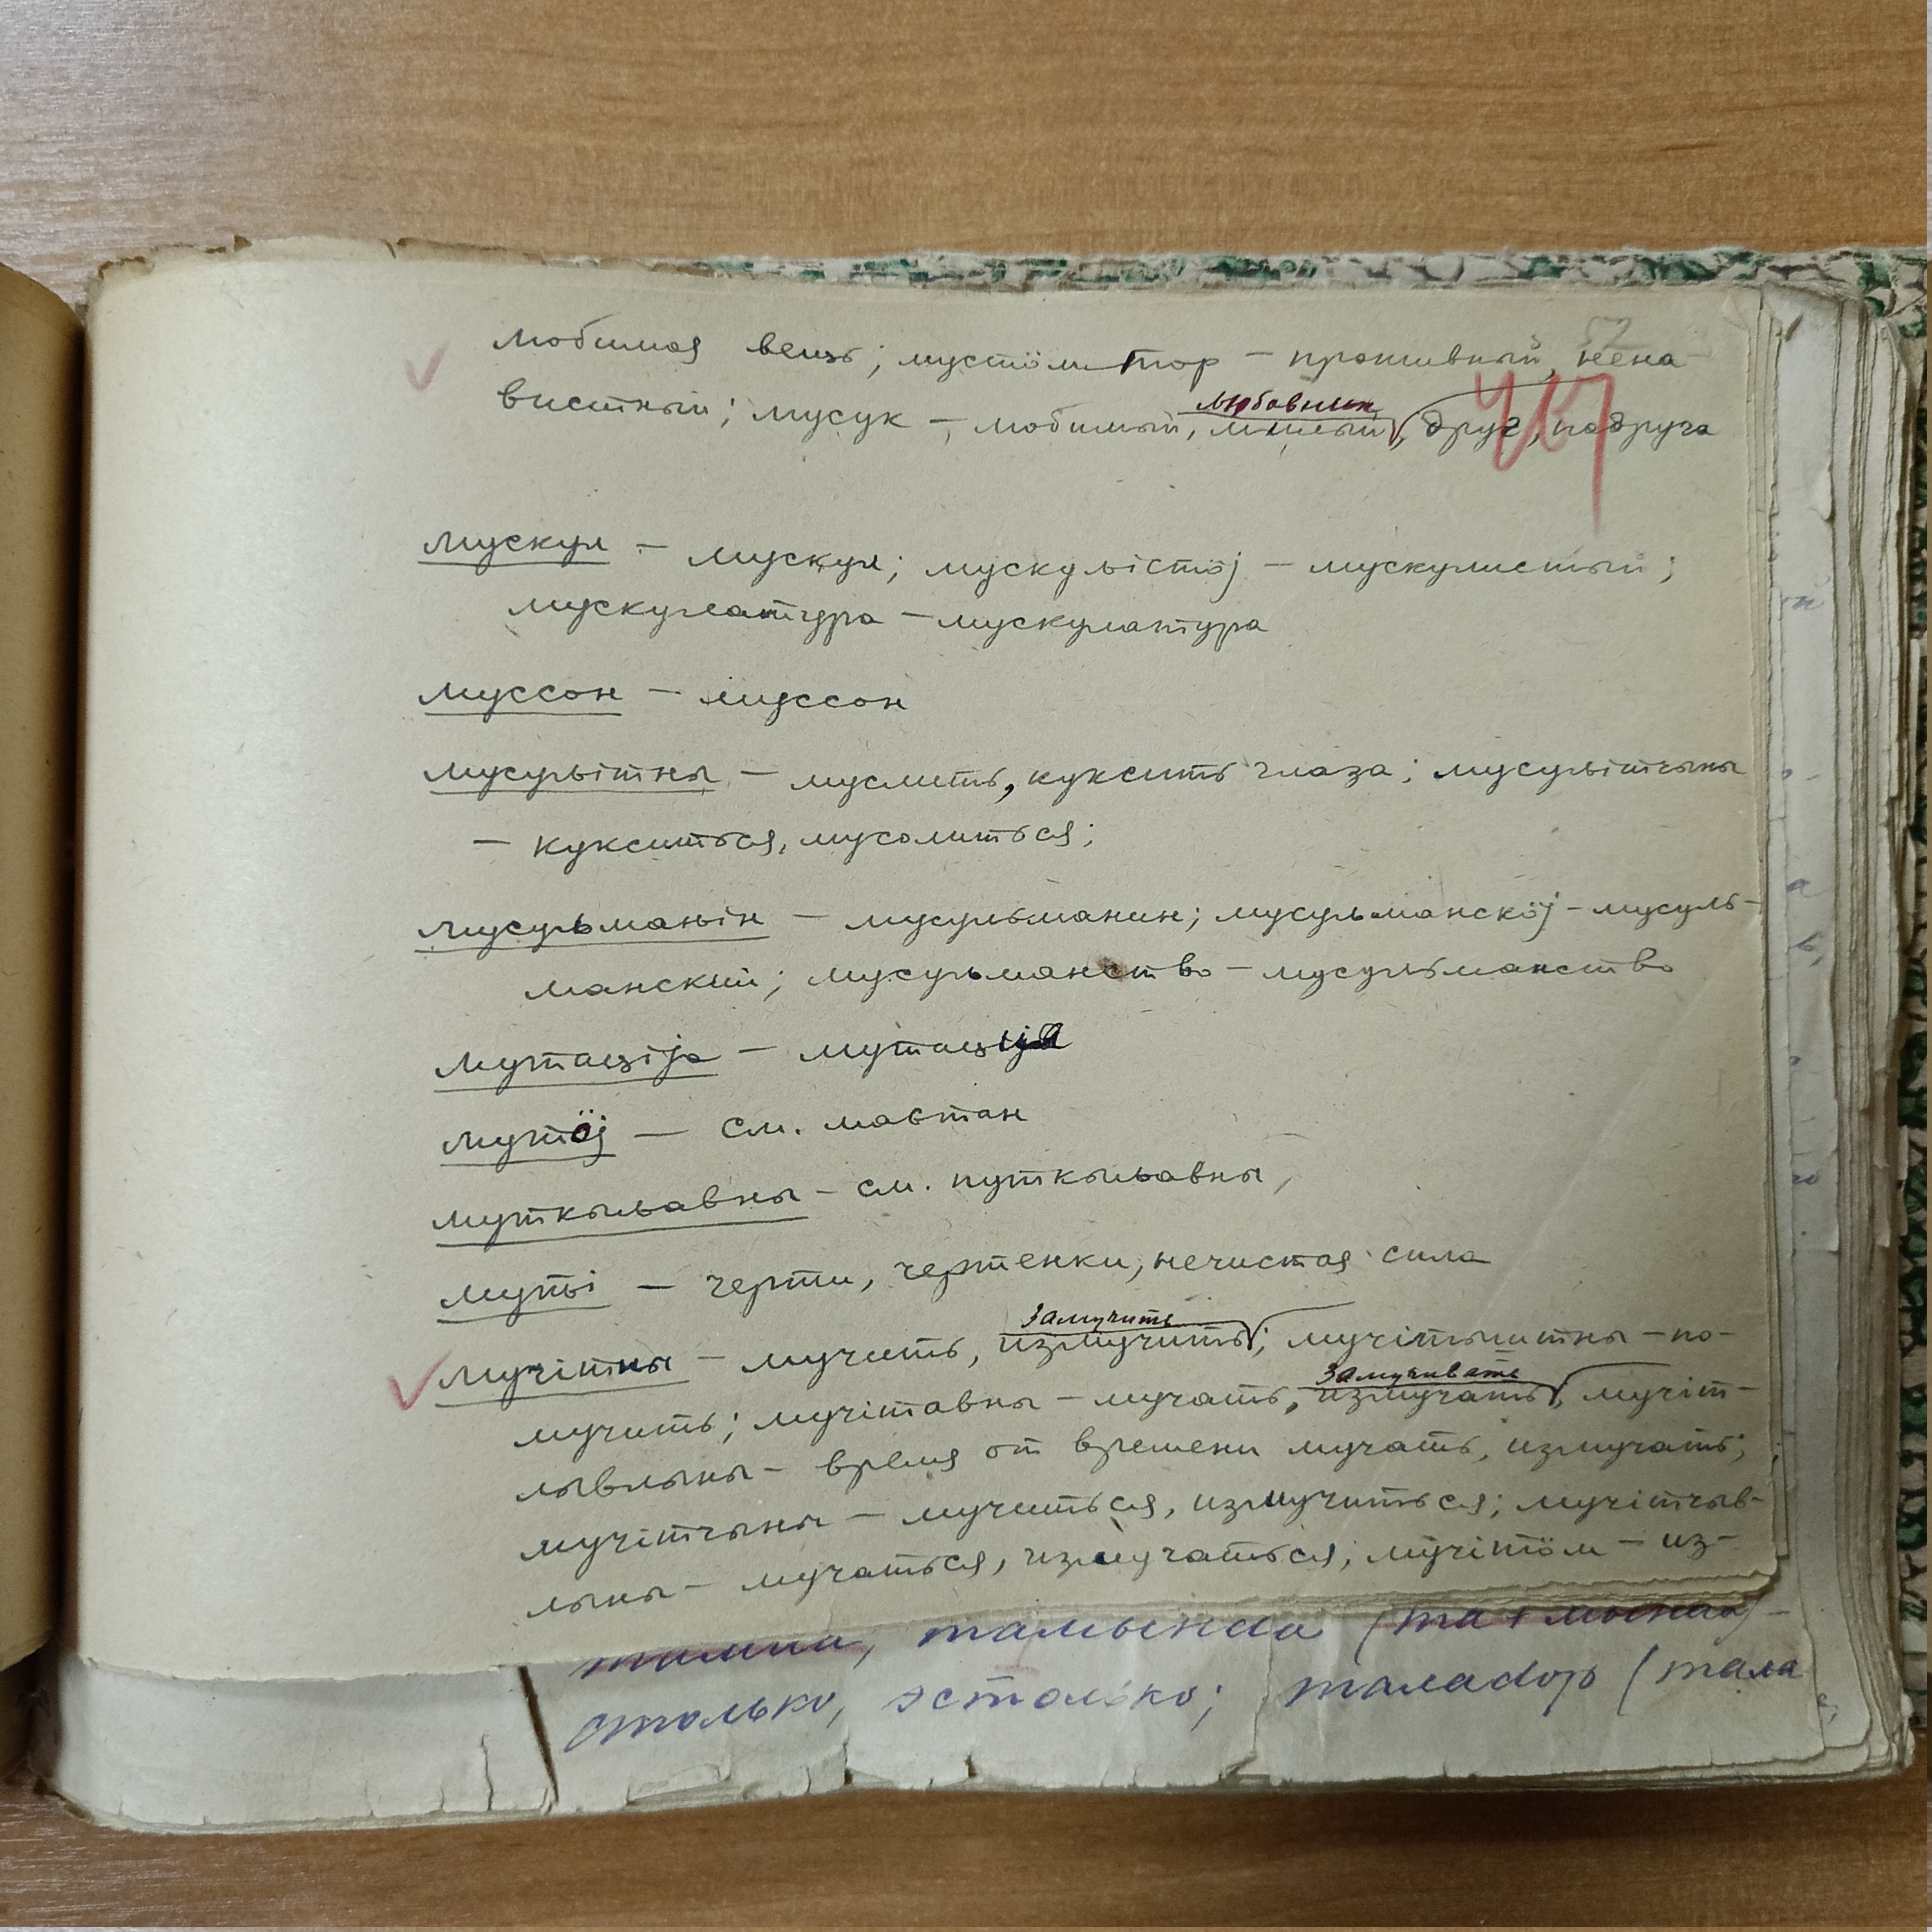 любимая вещь; мустӧм тор – противный, нена-
417
любовник
вистный; мусук – любимый, милый, друг, подруга
мускул – мускул; мускулістӧј – мускулистый;
мускулатура – мускулатура
муссон – муссон
мусулітны – муслить, куксить глаза; мусулітчыны
– кукситься, мусолиться;
мусульманін – мусульманин; мусульманскӧј – мусуль-
манский; мусульманство – мусульманство
мутаціја – мутация
мутӧј – см. мавтан
муткыльавны – см. путкыльавны,
муті – черти, чертенки, нечистая сила
замучить
мучітны – мучить, измучить; мучітыштны – по-
замучивать
мучить; мучітавны – мучать, измучать, мучіт-
лывлыны – время от времени мучать, измучать;
мучітчыны – мучиться, измучиться; мучітчыв-
лыны – мучаться, измучаться; мучітӧм – из-
столько, эстолько; таладор (тала